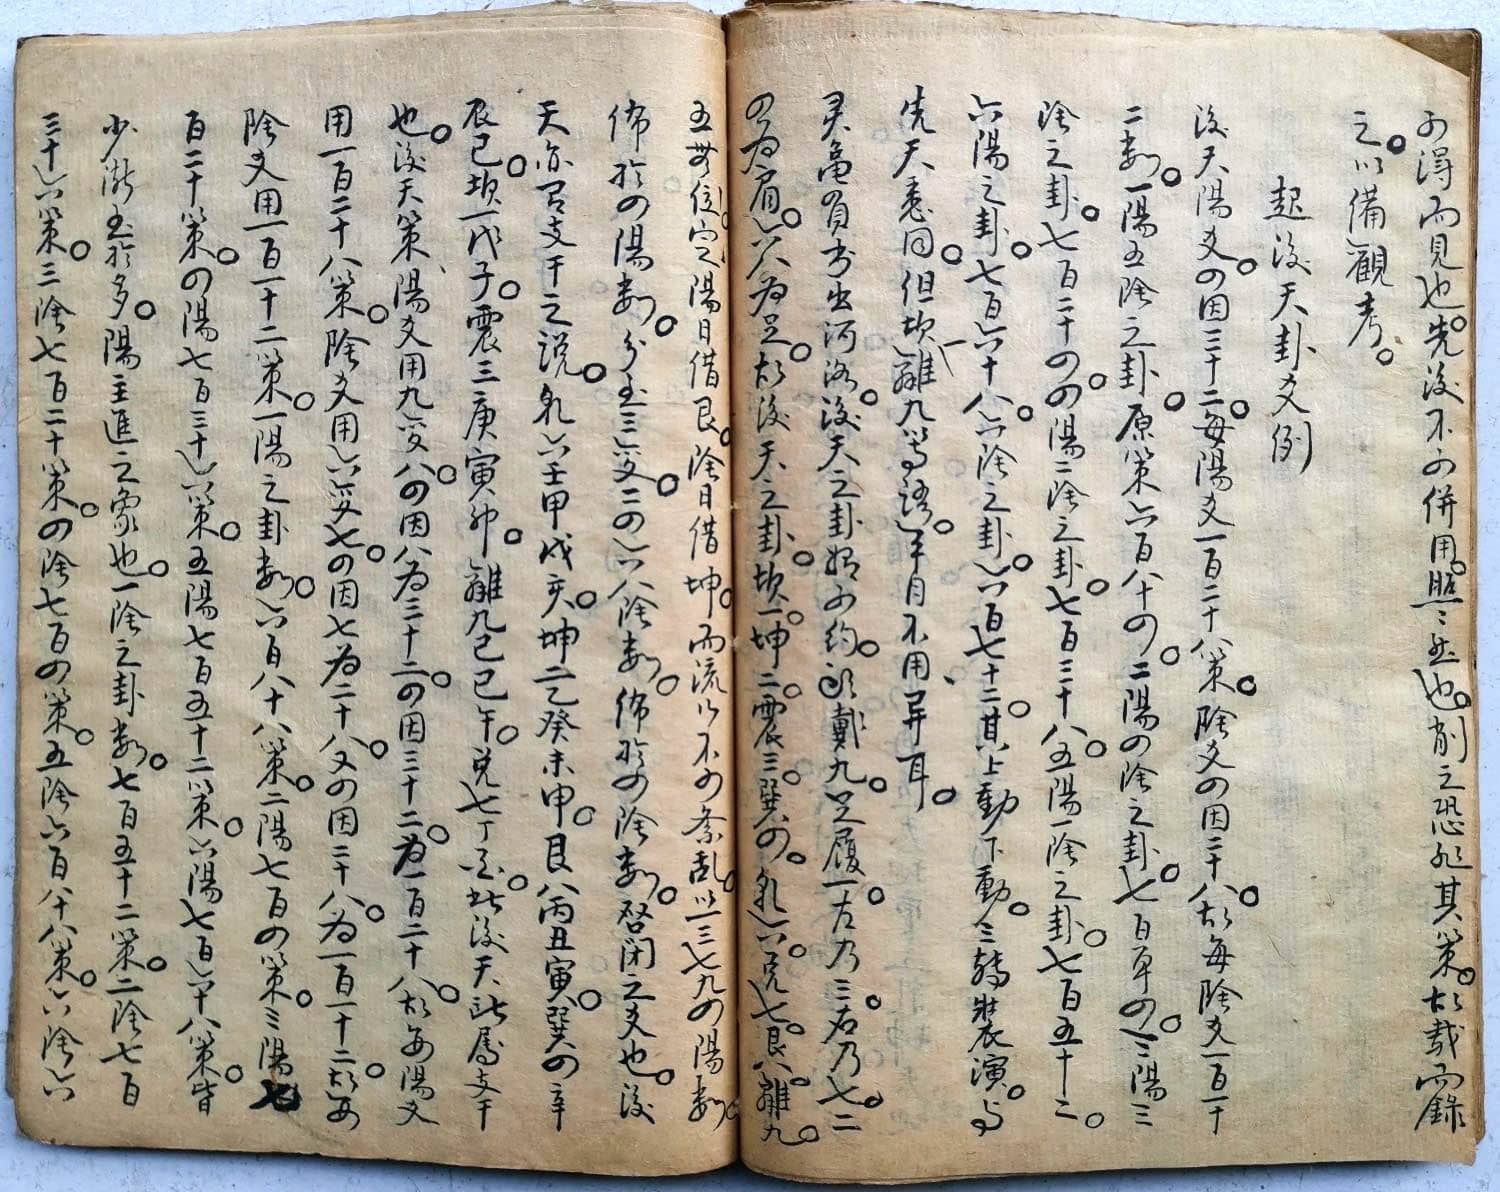 可得而見也。先後不可併用。照照然也。削之恐沒其策。故載而錄
之。以備觀考。
起後天卦爻例
後天陽爻。四因三十二。每陽爻一百二十八策。陰爻四因二十八。故每陰爻一百一十
二數。一陽五陰之卦。原策六百八十四。二陽四陰之卦。七百單四。三陽三
陰之卦。七百二十四。四陽二陰之卦。七百三十八。五陽一陰之卦。七百五十二。
六陽之卦。七百六十八。六陰之卦。六百七十二。其上動下動。全轉裝演。與
先天悉同。但坎離九等語。年月不用異耳。
灵龜負書出河洛。後天之卦始可約。頭戴九。足履一。左乃三。右乃七。二
四為肩。六八為足。故後天之卦。坎一。坤二。震三。巽四。乾六。兌七。艮八。離九。
五無位定。陽日借艮。陰日借坤。而流行不可紊乱。以一三七九四陽數。
佈於四陽數。分至三六爻。二四六八陰數。佈於四陰數。啓閉之爻也。後
天亦有支干之說。乾六壬甲戌亥。坤二乙癸未申。艮八丙丑寅。巽四辛
辰巳。坎一戊子。震三庚寅卯。離九己巳午。兌七丁酉。此後天所屬支干
也。後天策陽爻用九變八。四因八為三十二。四因三十二。為一百二十八。故每陽爻
用一百二十八策。陰爻用六變七。四因七為二十八。又四因二十八。為一百一十二。故每
陰爻用一百一十二策。一陽之卦數。六百八十八策。二陽七百四策。三陽七
百二十策。四陽七百三十六策。五陽七百五十二策。六陽七百六十八策。皆
少漸至於多。陽主進之象也。一陰之卦數。七百五十二策。二陰七百
三十六策。三陰七百二十策。四陰七百四策。五陰六百八十八策。六陰六